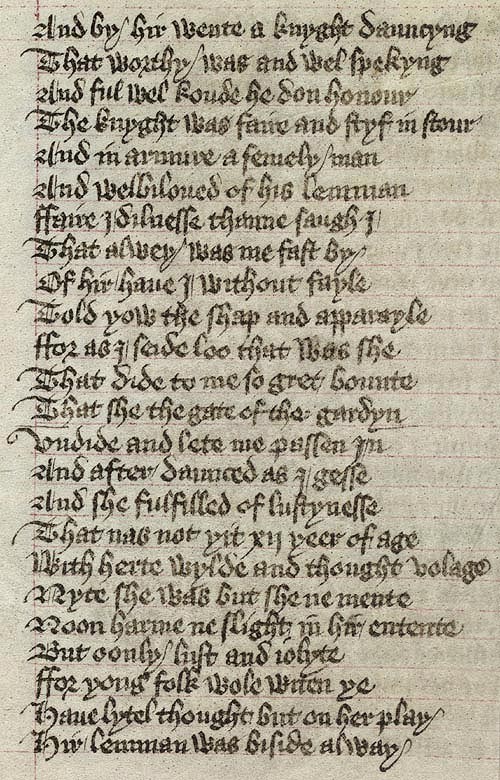 And by hir wente a knyght dauncyng
That worthy was and wel spekyng
And ful wel koude he don honour
The knyght was faire and styf in stour
And in armure a semely man
And welbiloued of his lemman
ffaire Idilnesse thanne saugh I
That alwey was me fast by
Of hir haue I without fayle
Told yow the shap and apparayle
ffor as I seide loo that was she
That dide to me so gret bounte
That she the gate of the gardyn
Vndide and lete me passen In
And after daunced as I gesse
And she fulfilled of lustynesse
That nas not yit xii yeer of age
With herte wylde and thought volage
Nyce she was but she ne mente
Noon harme ne slight in hir entente
But oonly lust and iolyte
ffor yong folk wole witen ye
Haue lytel thought but on her play
Hir lemman was biside alway